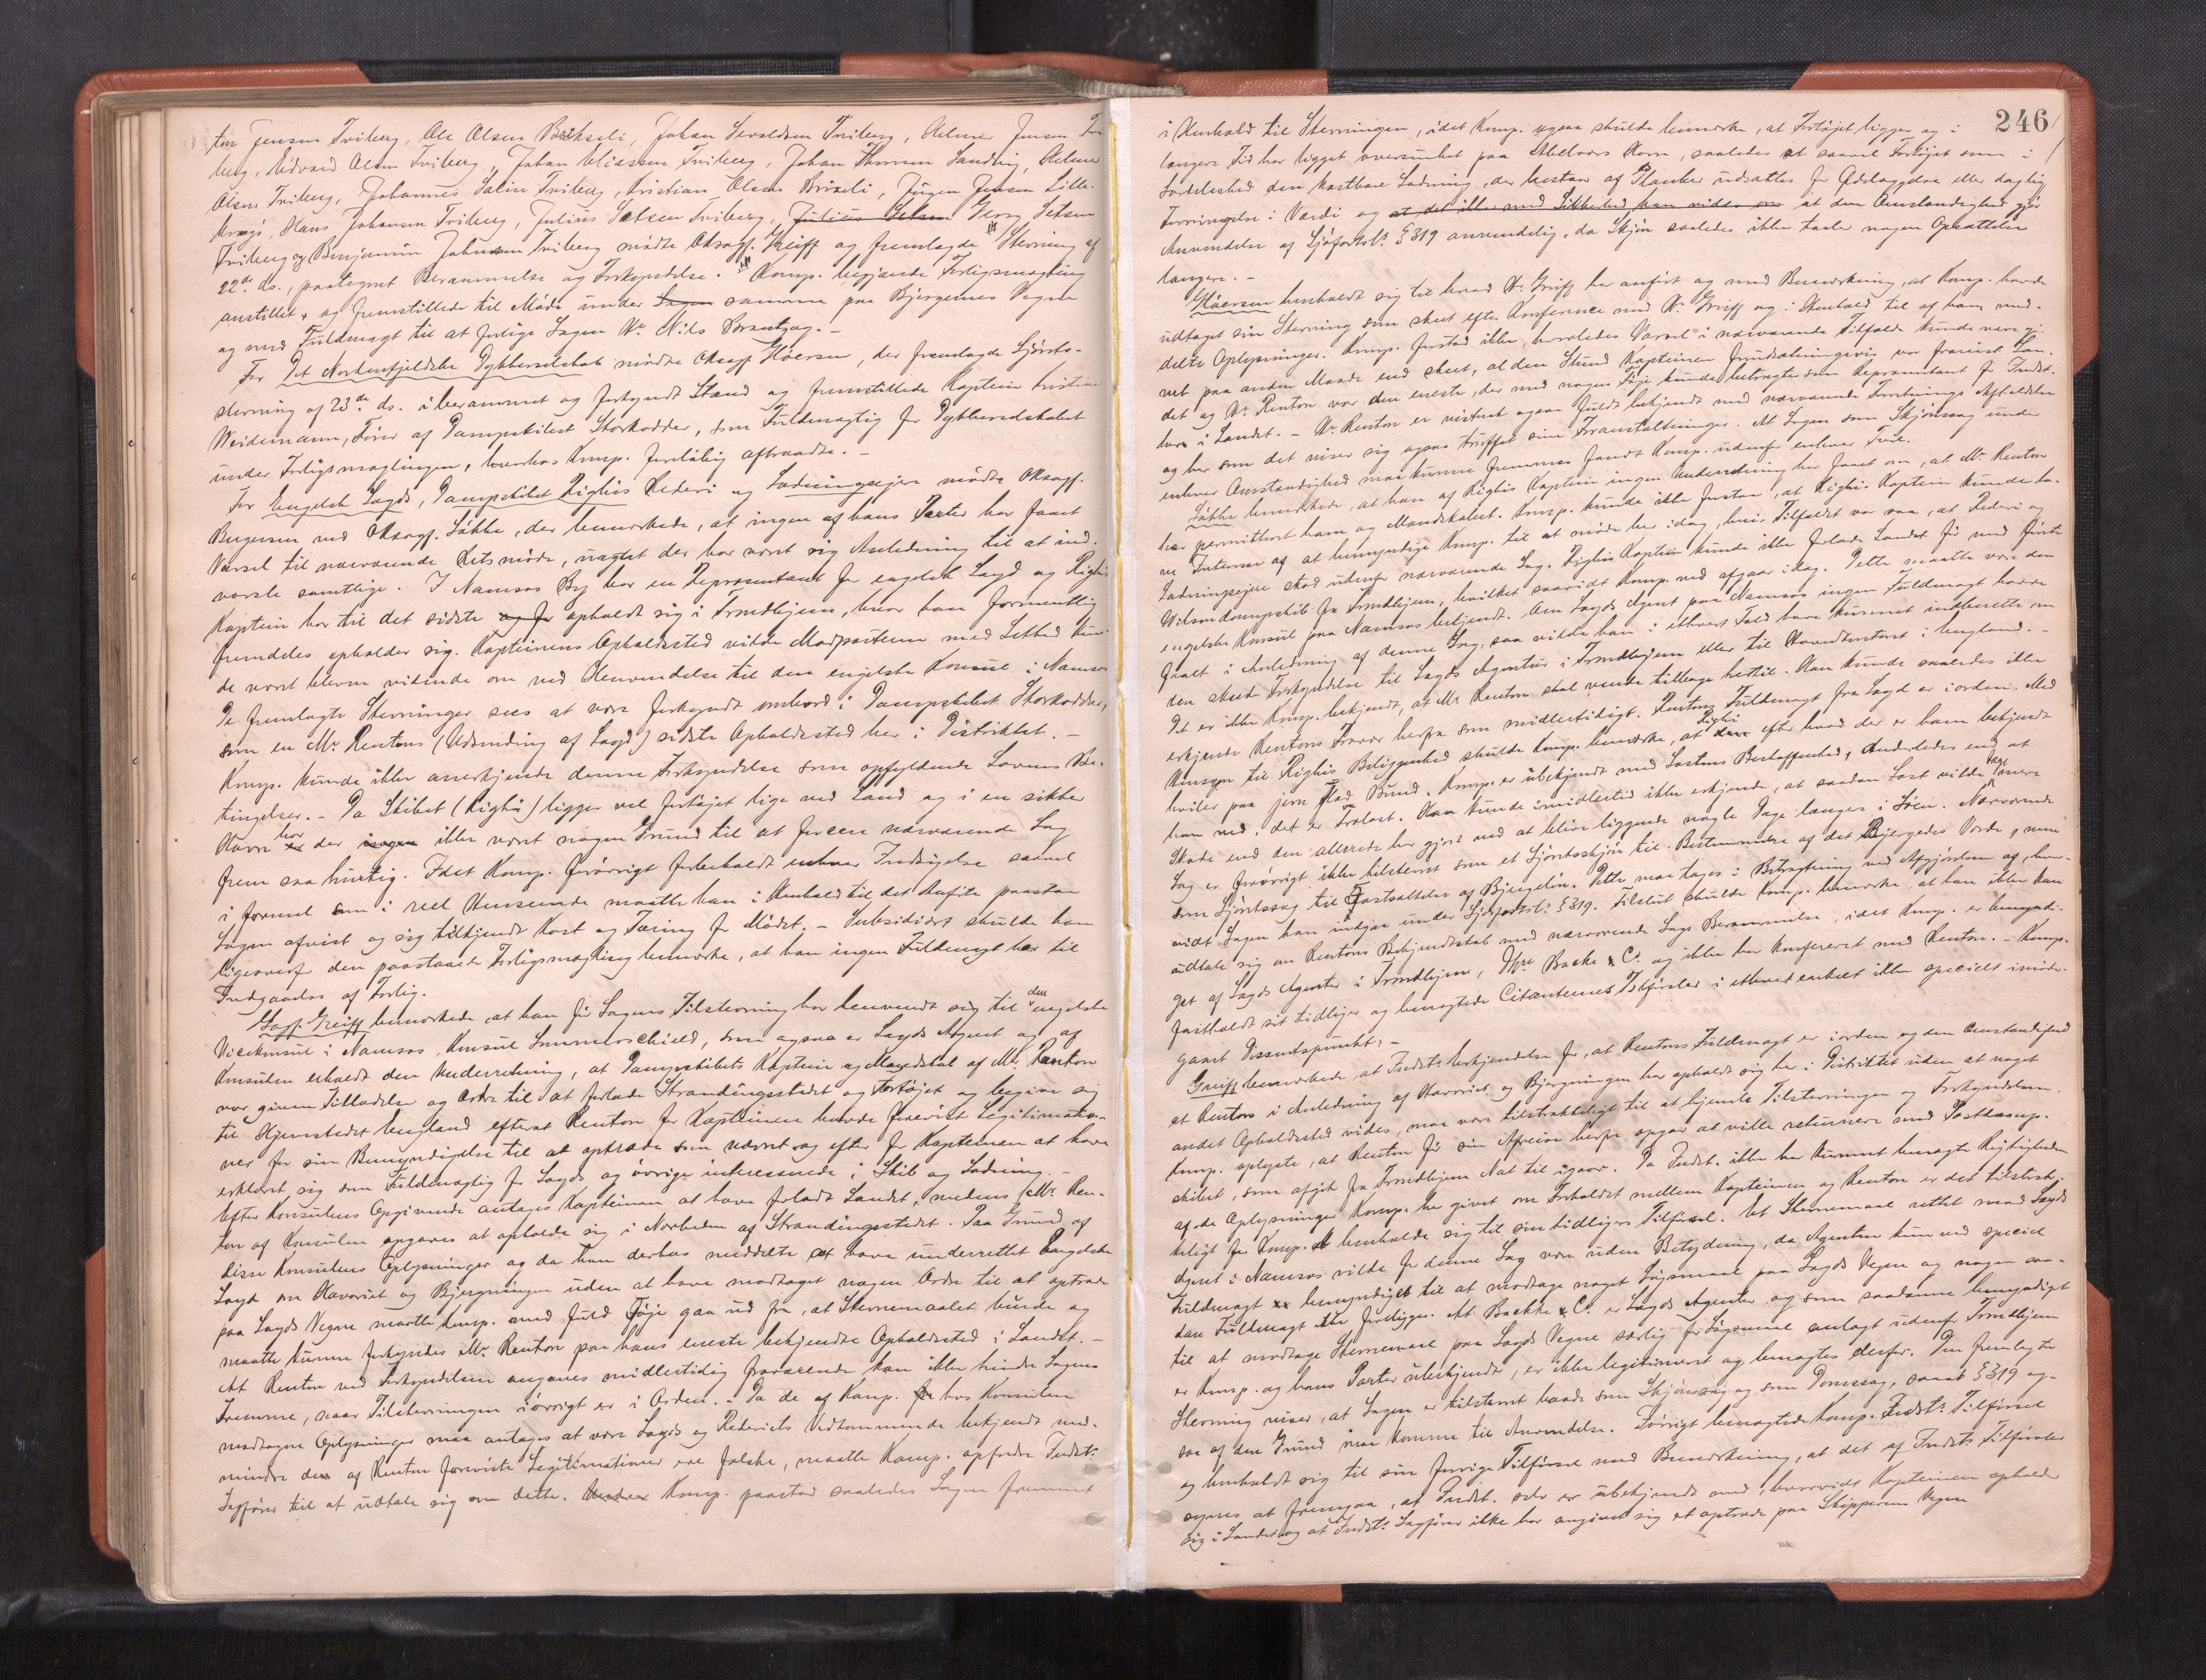 Jensen Tviberg, Ole Olsen Brekseli, Johan Tviberg, Jensen Tvi-
berg, Edvard Olsen Tviberg, Johan Eliassen Tviberg, Johan Thomsen Sandvig,
Olsen Tviberg, Johannes Salin Tviberg, Kristian Olsen Brixeli, Jørgen Jensen Lille-
Hans Johansen Tviberg, Julius Setsen Tviberg, Julius Setsen Georg Setsen
Tviberg og Benjamin Johansen Tviberg mødte Oksagf. Greiff og fremlagde Stevning af
22de ds., paategnet Berammelse og Forkyndelse. Komp. begjærede Forligsmægling
anstillet og fremstillede til Møde under Sagen samme paa Bjergernes Vegne
og med Fuldmagt til at forlige Sagen Hr. Nils Brantzæg. -
For Det Nordenfjeldske Dykkerselskab mødte Oksagf. Gløersen, der fremlagde Sjørets-
stevning af 23de ds. i berammet og forkyndt Stand og fremstillede Kaptein Kristian
Weidemann, Fører af Dampskibet Storkodder, som Fuldmægtig for Dykkerselskabet
under Forligsmæglingen, hvorhos Komp. foreløbig aftraadte. -
For Engelsk Loyds, Dampskibet Righis Rederi og Ladningsejer mødte Oksagf.
Birgersen ved Oksagf. Løkke, der bemærkede, at ingen af hans Parter har faaet
Varsel til nærværende Retsmøde, uagtet der har været rig Anledning til at ind-
varsle samtlige. I Namsos By bor en Repræsentant for engelsk Loyd og Righis
Kaptein har til det sidste og for opholdt sig i Trondhjem, hvor han formentlig
fremdeles opholder sig. Kapteinens Opholdssted vilde Modparterne med Lethed kun-
de været bleven vidende om ved Henvendelse til den engelske Konsul i Namsos
De fremlagte Stevninger sees at være forkyndt ombord i Dampskibet Storkodder,
som en Mr. Rentons (Udsending af Loyd) sidste Opholdssted her i Distriktet. -
Komp. kunde ikke anerkjende denne Forkyndelse som opfyldende Lovens Be-
tingelser. - Da Skibet (Righi) ligger vel fortøjet lige ved Land og i en sikker
Havn er har der ingen ikke været nogen Grund til at fremme nærværende Sag
frem saa hurtig. Idet Komp. forøvrigt forbeholdt enhver Indsigelse saavel
i formel som i reel Henseende maatte han i Henhold til det Anførte paastaa
Sagen afvist og sig tilkjendt Kost og Tæring for Mødet. - Subsidiært skulde han
ligeoverfor den paastaaede Forligsmægling bemærke, at han ingen Fuldmagt har til
Indgaaelse af Forlig.
Sagf. Greiff bemærkede at han før Sagens Tilstevning har henvendt sig til den engelske
Vicekonsul i Namsos, Konsul Sommerschield, som ogsaa er Loyds Agent og af
Konsulen erholdt den Underretning, at Dampskibets Kaptein og Mandskab af Mr. Renton
var given Tilladelse og Ordre til at forlade Strandingsstedet og Fartøjet og begive sig
til Hjemstedet England efterat Renton for Kapteinen havde forevist Legitimatio-
ner for sin Bemyndigelse til at optræde som nævnt og efter for Kapteinen at have
erklæret sig som Fuldmægtig for Loyds og øvrige interesserede i Skib og Ladning. -
Efter Konsulens Opgivende antages Kapteinen at have forladt Landet, medens Mr. Ren-
ton af Konsulen opgaves at opholde sig i Nærheden af Strandingsstedet. Paa Grund af
disse Konsulens Oplysninger og da han derhos meddelte at have underrettet Engelske
Loyd om Havariet og Bjergningen uden at have modtaget nogen Ordre til at optræde
paa Loyds Vegne maatte Komp. med fuld Føje gaa ud fra, at Stevnemaalet burde og
maatte kunne forkyndes Mr. Renton paa hans eneste bekjendte Opholdssted i Landet. -
At Renton ved Forkyndelsen angaves midlertidig fraværende kan ikke hindre Sagens
Fremme, naar Tilstevningen iøvrigt er i Orden. - Da de af Komp. for hos Konsulen
modtagne Oplysninger maa antages at være Loyds og Rederiets Vedkommende bekjendt med-
mindre de af Renton foreviste Legitimationer ere falske, maatte Komp. opfordre Indst.s
Sagfører til at udtale sig om dette. Komp. paastod saaledes Sagen fremmet
246
i Henhold til Stevningen, idet Komp. ogsaa skulde bemærke, at Fartøjet ligger og i
længere Tid har ligget oversunket paa Abelvær Havn, saaledes at saavel Fartøjet som i
Særdeleshed den kostbare Ladning, der bestaar af Planker udsættes for Ødelæggelse eller daglig
Forringelse i Værdi og at det ikke med Sikkerhed kan vides om at den Omstændighed gjør
Anvendelse af Sjøfartsl.s § 319 anvendelig, da Skjøn saaledes ikke taaler nogen Opsættelse
længere. -
Gløersen henholdt sig til hvad Hr. Greiff har anført og med Bemærkning, at Komp. havde
udtaget sin Stevning som skeet efter Konference med Hr. Greiff og i Henhold til af ham med-
delte Oplysninger. Komp. forstod ikke, hvorledes Varsel i nærværende Tilfælde kunde være gi-
vet paa anden Maade end skeet, al den Stund Kapteinen forudsætningsvis var fraveist Lan-
det og Hr. Renton var den eneste, der med nogen Føje kunde betragtes som Repræsentant for Indst.
her i Landet. - Hr. Renton er vistnok ogsaa fuldt bekjendt med nærværende Forretnings Afholdelse
og har som det viser sig ogsaa truffet sine Foranstaltninger. At Sagen som Skjønssag under
enhver Omstændighed maa kunne fremmes fandt Komp. udenfor enhver Tvil.
Løkke bemærkede, at han af Righis Kaptein ingen Underretning har faaet om, at Mr. Renton
har permitteret ham og Mandskabet. Komp. kunde ikke forstaa, at Righis Kaptein kunde ha-
ve Interesse af at bemyndige Komp. til at møde her idag, hvis Tilfældet var saa, at Rederi og
Ladningsejere stod udenfor nærværende Sag. Righis Kaptein kunde ikke forlade Landet før med første
Wilsondampskib fra Trondhjem, hvilket saavidt Komp. ved afgaar idag. Dette maatte være den
engelske Konsul paa Namsos bekjendt. Om Loyds Agent paa Namsos ingen Fuldmagt havde
faaet i Anledning af denne Sag, saa vilde han i ethvert Fald have kunnet indberette om
den skeede Forkyndelse til Loyds Agentur i Trondhjem eller til Hovedkontoret i England. -
Det er ikke Komp. bekjendt, at Mr. Renton skal vende tilbage hertil. Han kunde saaledes ikke
erkjende Rentons Fravær herfra som midlertidigt. Rentons Fuldmagt fra Loyd er i orden. Med
Hensyn til Righis Beliggenhed skulde Komp. bemærke, at den Righi efter hvad der er ham bekjendt
hviler paa jevn flad Bund. Komp. er ubekjendt med Lastens Beskaffenhed, Anderledes end at
han ved, det er Trælast. Han kunde imidlertid ikke erkjende, at saadan Last vilde tage mere
Skade end den allerede har gjort ved at blive liggende nogle Dage længere i Søen. Nærværende
Sag er forøvrigt ikke tilstevnt som et Sjøretsskjøn til Bestemmelse af det Bjergedes Værdi, men
som Sjøretssag til Fastsættelse af Bjergeløn. Dette maa tages i Betragtning ved Afgjørelsen af, hvor-
vidt Sagen kan indgaa under Sjøfartsl.s § 319. Tilslut skulde Komp. bemærke, at han ikke kan
udtale sig om Rentons Bekjendtskab med nærværende Sags Berammelse, idet Komp. er bemyndi-
get af Loyds Agenter i Trondhjem, Hrr. Bache & Co. og ikke har konfereret med Renton. - Komp.
fastholdt sit tidligere og benægtede Citanternes Tilførsler i ethvert enkelt ikke specielt imøde-
gaaet Dissentspunkt. -
Greiff bemærkede at Indst.s Erkjendelse for, at Rentons Fuldmagt er i orden og den Omstændighed
at Renton i Anledning af Havariet og Bjergningen har opholdt sig her i Distriktet uden at noget
andet Opholdssted vides, maa være tilstrækkeligt til at hjemle Tilstevningen og Forkyndelsen.
Komp. oplyste, at Renton før sin Afreise herfra opgav at ville returnere med Postdamp-
skibet, som afgik fra Trondhjem Nat til igaar. Da Indst. ikke har kunnet benægte Rigtigheden
af de Oplysninger Komp. har givet om Forholdet mellem Kapteinen og Renton er det tilstræk-
keligt for Komp. at henholde sig til sin tidligere Tilførsel. Et Stevnemaal rettet mod Loyds
Agent i Namsos vilde for denne Sag være uden Betydning, da Agenten kun ved speciel
Fuldmagt er bemyndiget til at modtage noget Søgsmaal paa Loyds Vegne og nogen saa-
dan Fuldmagt ikke foreligger. At Bachke & Co. er Loyds Agenter og som saadanne bemyndiget
til at modtage Stevnemaal paa Loyds Vegne særlig for Søgsmaal anlagt udenfor Trondhjem
er Komp. og hans Parter ubekjendt, er ikke legitimeret og benægtes derfor. Den fremlagte
Stevning viser, at Sagen er tilstevnt baade som Skjønssag og som Domssag, saa at § 319 og-
saa af den Grund maa komme til Anvendelse. Iøvrigt benægtede Komp. Indst.s Tilførsel
og henholdt sig til sin forrige Tilførsel med Bemærkning, at det af Indst.s Tilførsler
synes at fremgaa, at Indst. selv er ubekjendt med, hvorvidt Kapteinen opholder
sig i Landet og at Indst.s Sagfører ikke har angivet sig at optræde paa Skipperens Vegne